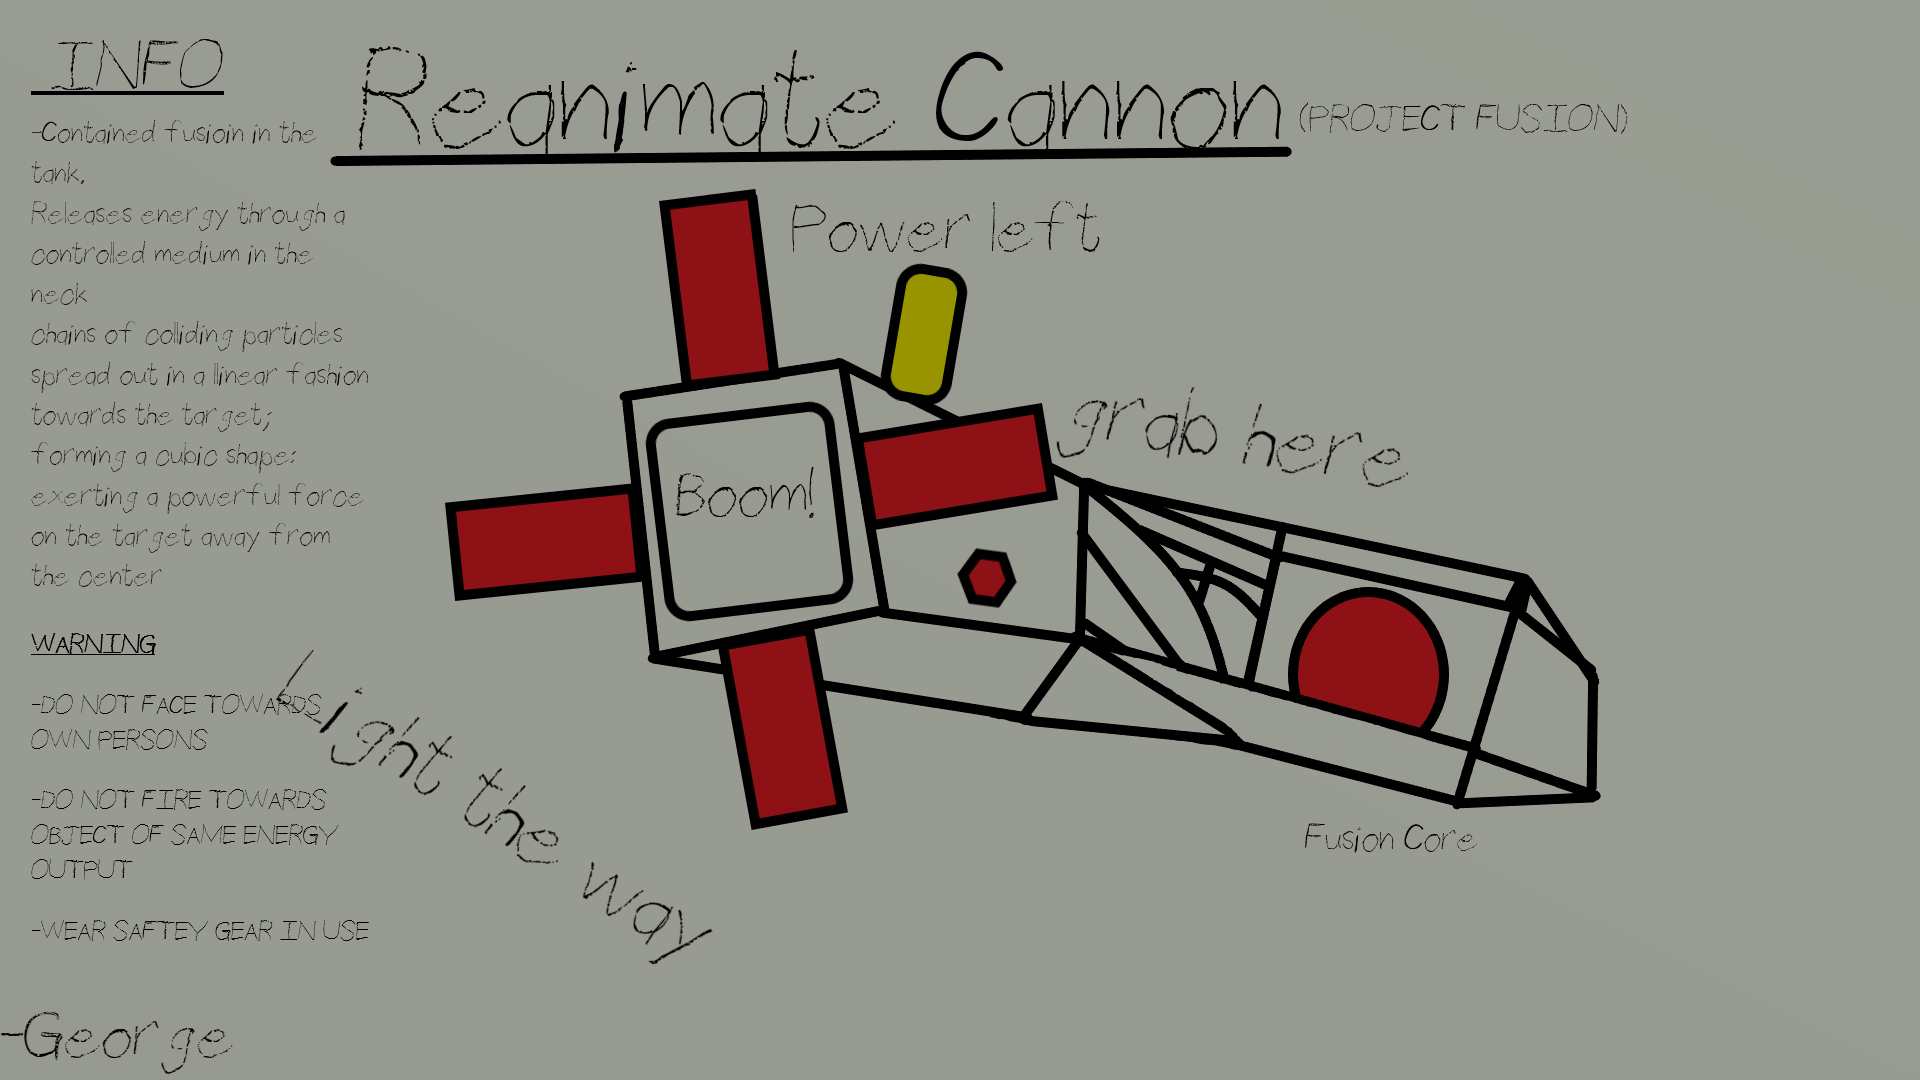 INFO
Reanimate Cannon (PROJECT FUSION)
-Contained fusioin in the
tank.
Releases energy through a
controlled medium in the
neck
chains of colliding particles
spread out in a linear fashion
towards the target;
forming a cubic shape:
exerting a powerful force
on the target away from
the center
WARNING
-DO NOT FACE TOWARDS
OWN PERSONS
-DO NOT FIRE TOWARDS
OBJECT OF SAME ENERGY
OUTPUT
-WEAR SAFTEY GEAR IN USE
-George
Power left
grab here
Boom!
Light the way
Fusion Core